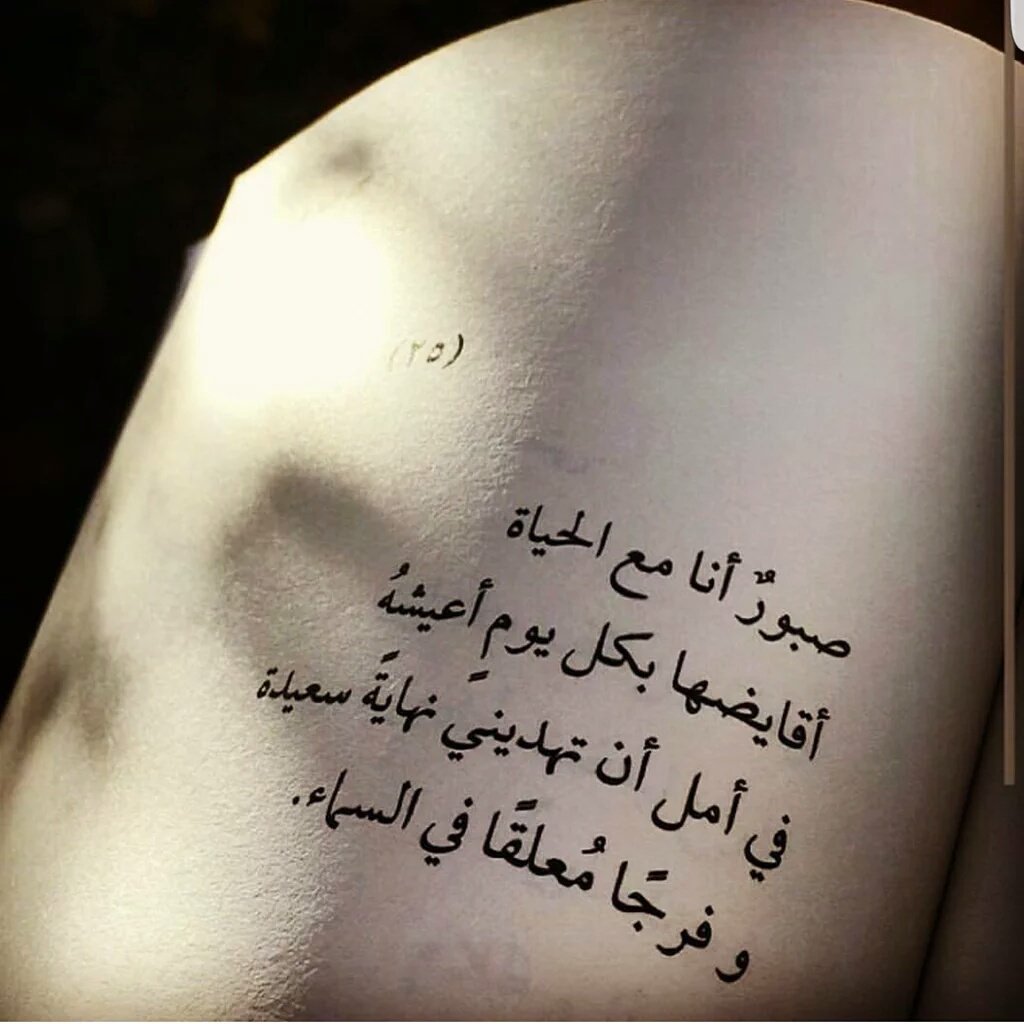 (٢٥)
صبورٌ أنا مع الحياة
أقايضها بكل يومٍ أعيشهُ
في أمل أن تهديني نهايةً سعيدة
و فرجًا مُعلقًا في السماء.